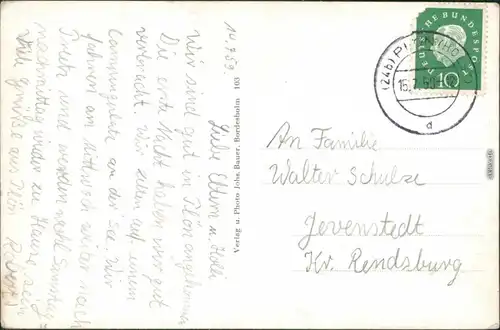 14.7.59
Liebe Eltern u. Holli
Wir sind gut in Plön angekommen
Die erste Nacht haben wir gut
verbracht. Wir zelten auf einem
Campingplatz an der See. Wir
fahren am Mittwoch weiter nach
Preetz und werden wohl Sonntag
nachmittag wieder zu Hause sein
Viele Grüsse aus Plön
Verlag u. Photo Johs. Bauer, Bordesholm 103
DEUTSCHE BUNDESPOST
10
(24b)
d
An Familie
Walter Schulze
Jevenstedt
Kr. Rendsburg